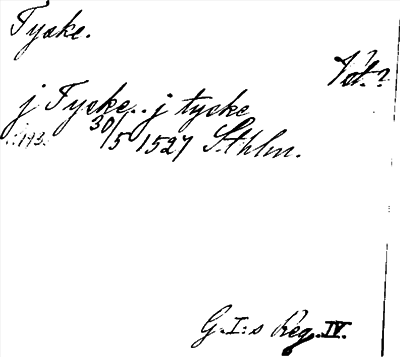 Tyske.
Vät.?
j Tyske.. j tycke
s. 193. 30/5 1527 Sthlm.
G. I:s Reg. IV.